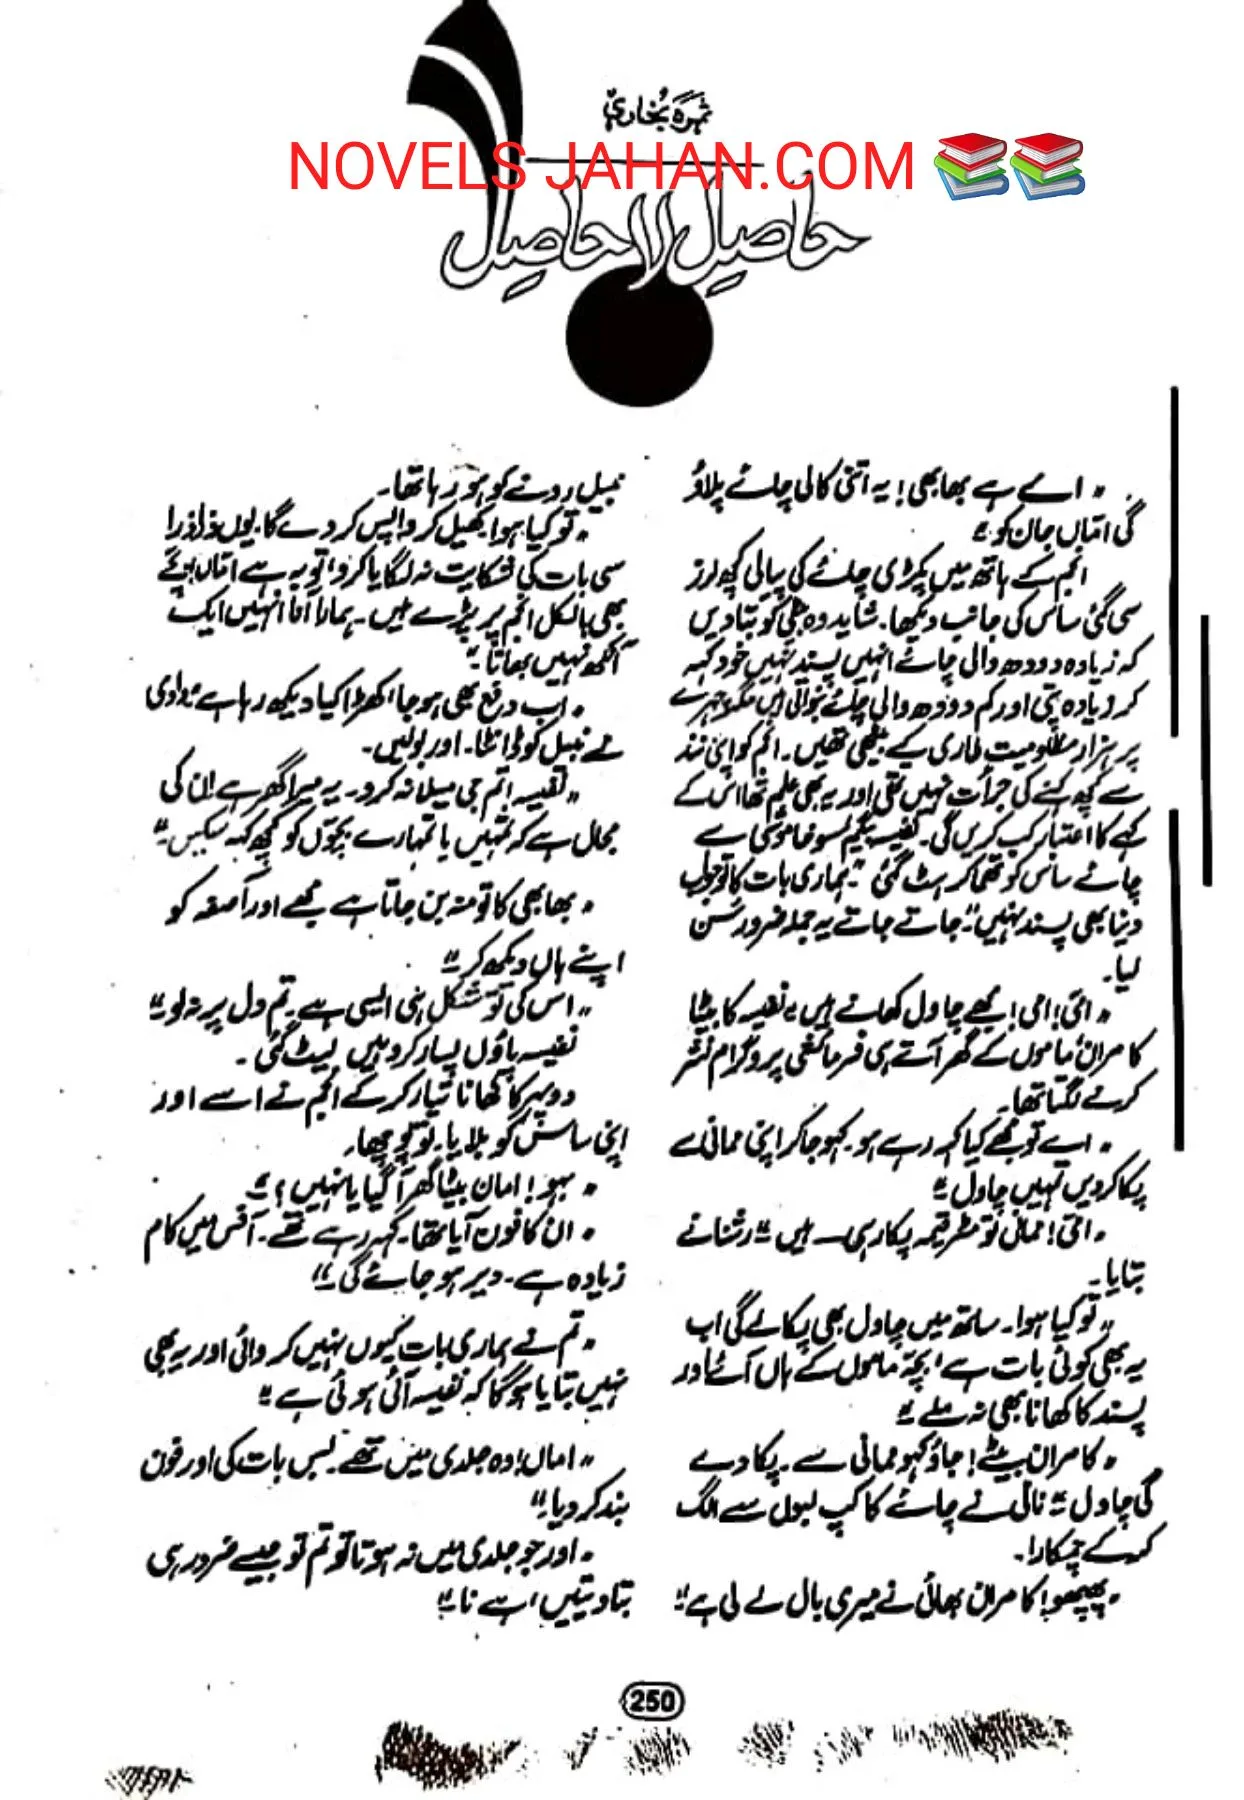 ثمرہ بخاری
NOVELS JAHAN.COM
حاصِل لا حاصِل
"اے ہے بھابھی! یہ اتنی کالی چائے پلاؤ
گی امّاں جان کو۔"
انجم کے ہاتھ میں پکڑی چائے کی پیالی کچھ لرز
سی گئی ساس کی جانب دیکھا۔ شاید وہ بیٹی کو بتا دیں
کہ زیادہ دودھ والی چائے انہیں پسند نہیں خود کہہ
کر زیادہ پتی اور کم دودھ والی چائے بنوائی ہیں مگر وہ چہرے
پر ہزار مظلومیت طاری کیے بیٹھی تھیں۔ انجم کو اپنی نند
سے کچھ کہنے کی جرأت نہیں تھی اور یہ بھی علم تھا اس کے
کہے کا اعتبار کب کریں گی۔ نفیسہ بیگم سو خاموشی سے
چائے ساس کو تھما کر ہٹ گئی "ہماری بات کا تو جواب
دینا بھی پسند نہیں" جاتے جاتے یہ جملہ ضرور سن
لیا۔
"امّی! امی! مجھے چاول کھانے ہیں" نفیسہ کا بیٹا
کامران ماموں کے گھر آتے ہی فرمائشی پروگرام نشر
کرنے لگتا تھا۔
"اے تو مجھے کیا کہہ رہے ہو۔ کہو جا کر اپنی ممانی سے
پکا کر دیں تمہیں چاول۔"
"امّی! ممانی تو مٹر قیمہ پکا رہی ہیں" رشنا نے
بتایا۔
"تو کیا ہوا۔ ساتھ میں چاول بھی پکا لے گی اب
یہ بھی کوئی بات ہے، بچّہ ماموں کے ہاں آئے اور
پسند کا کھانا بھی نہ ملے۔"
"کامران بیٹے! جاؤ کہو ممانی سے۔ پکا دے
گی چاول" نانی نے چائے کا کپ لبوں سے الگ
کر کے چمکارا۔
"پھپھو! کامران بھائی نے میری بال لے لی ہے"
نبیل رونے کو ہو رہا تھا۔
"تو کیا ہوا۔ کھیل کر واپس کر دے گا۔ یوں ذرا ذرا
سی بات کی شکایت نہ لگایا کرو، توبہ ہے امّاں بچے
بھی بالکل انجم پر پڑے ہیں۔ ہمارا آنا انہیں ایک
آنکھ نہیں بھاتا۔"
"اب دفع بھی ہو جا کھڑا کیا دیکھ رہا ہے" دادی
نے نبیل کو ڈانٹا۔ اور بولیں۔
"نفیسہ! تم جی میلا نہ کرو۔ یہ میرا گھر ہے ان کی
مجال ہے کہ تمہیں یا تمہارے بچّوں کو کچھ کہہ سکیں۔"
"بھابھی کا تو منہ بن جاتا ہے مجھے اور آصفہ کو
اپنے ہاں دیکھ کر۔"
"اس کی تو شکل ہی ایسی ہے۔ تم دل پر نہ لو۔"
نفیسہ پاؤں پسار کر وہیں لیٹ گئی۔
دوپہر کا کھانا تیار کر کے انجم نے اسے اور
اپنی ساس کو بلایا۔ تو پوچھا۔
"بہو! امان بیٹا گھر آ گیا یا نہیں؟"
"ان کا فون آیا تھا۔ کہہ رہے تھے۔ آفس میں کام
زیادہ ہے۔ دیر ہو جائے گی۔"
"تم نے ہماری بات کیوں نہیں کروائی اور یہ بھی
نہیں بتایا ہو گا کہ نفیسہ آئی ہوئی ہے۔"
"اماں! وہ جلدی میں تھے۔ بس بات کی اور فون
بند کر دیا۔"
"اور جو جلدی میں نہ ہوتا تو تم تو جیسے ضرور ہی
بتا دیتیں، اسے نا۔"
250